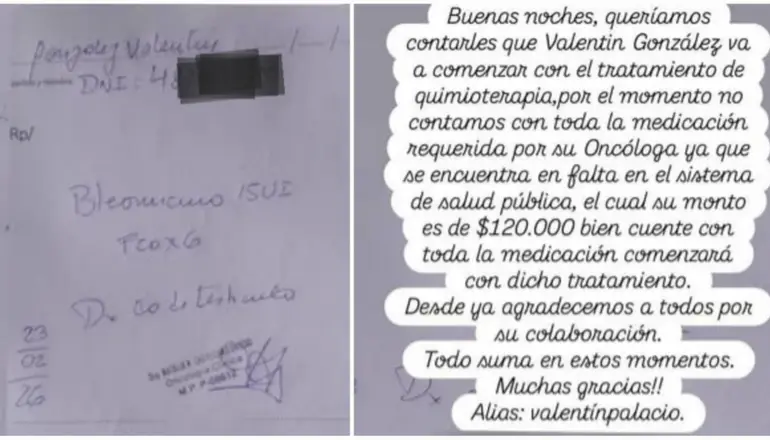 Gonzalez Valentin
DNI: 48
Rp/
Bleomicina 15UI
Fco x 6
Dx ca de testiculo
23
02
26
Oncología Clínica
Buenas noches, queríamos
contarles que Valentin González va
a comenzar con el tratamiento de
quimioterapia,por el momento no
contamos con toda la medicación
requerida por su Oncóloga ya que
se encuentra en falta en el sistema
de salud pública, el cual su monto
es de $120.000 bien cuente con
toda la medicación comenzará
con dicho tratamiento.
Desde ya agradecemos a todos por
su colaboración.
Todo suma en estos momentos.
Muchas gracias!!
Alias: valentínpalacio.